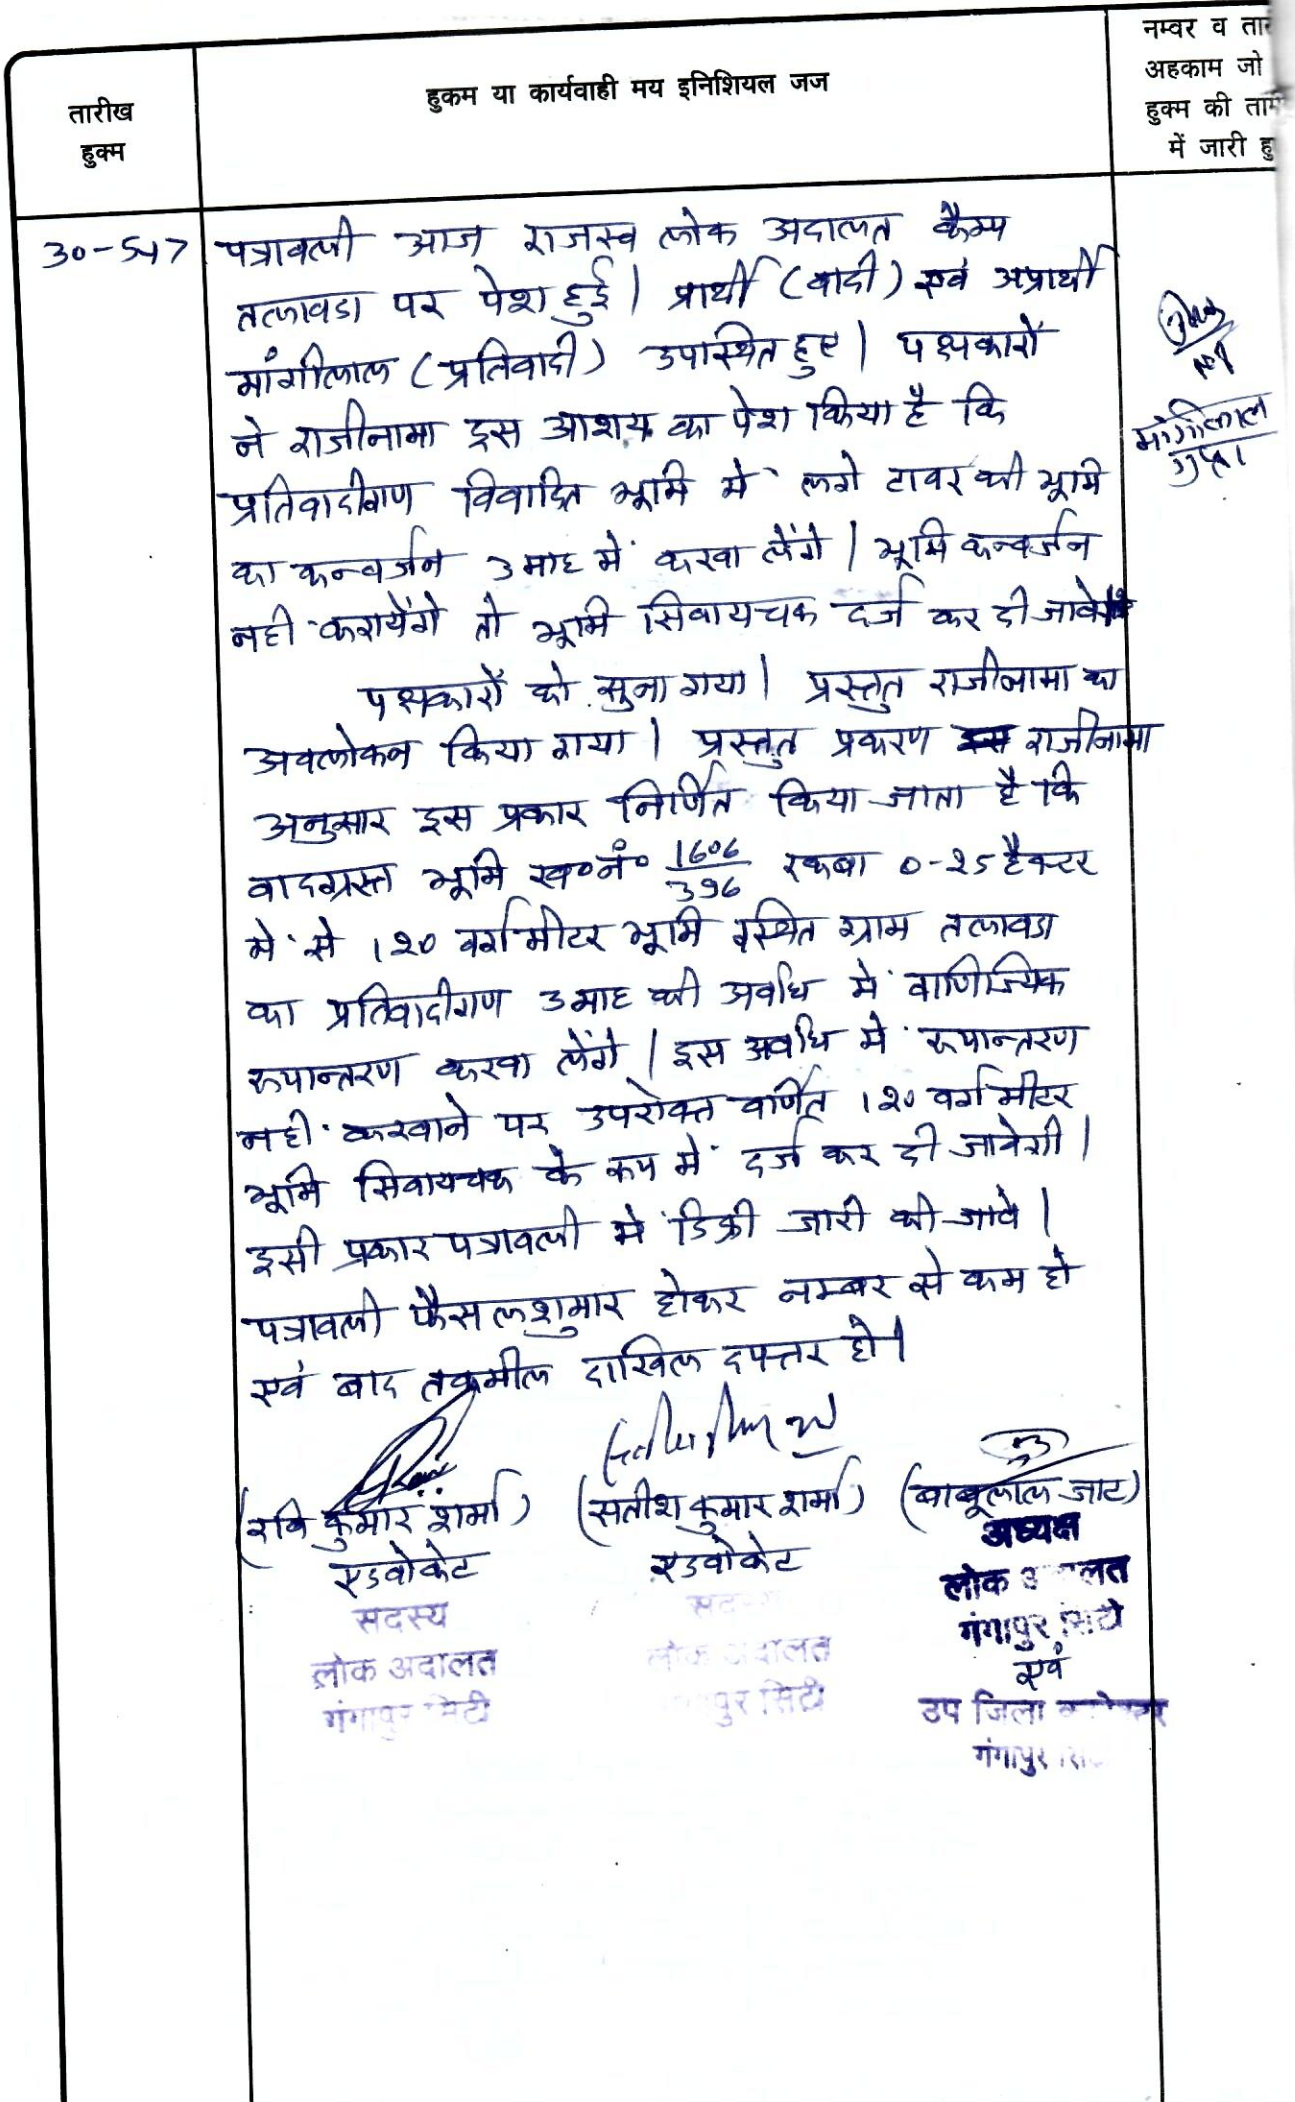 तारीख
हुक्म
हुकम या कार्यवाही मय इनिशियल जज
नम्बर व तार
अहकाम जो
हुक्म की तामी
में जारी हु
30-5-17
पत्रावली आज राजस्व लोक अदालत कैम्प
तलावडा पर पेश हुई। प्रार्थी (वादी) एवं अप्रार्थी
मांगीलाल (प्रतिवादी) उपस्थित हुए। पक्षकारों
ने राजीनामा इस आशय का पेश किया है कि
प्रतिवादीगण विवादित भूमि में लगे टावर की भूमि
का कन्वर्जन 3 माह में करवा लेंगे। भूमि कन्वर्जन
नही करायेंगे तो भूमि सिवायचक दर्ज कर दी जावे
पक्षकारों को सुना गया। प्रस्तुत राजीनामा का
अवलोकन किया गया। प्रस्तुत प्रकरण राजीनामा
अनुसार इस प्रकार निर्णित किया जाता है कि
वादग्रस्त भूमि ख०नं० 1606/396 रकबा 0-25 हैक्टर
में से 120 वर्गमीटर भूमि स्थित ग्राम तलावडा
का प्रतिवादीगण 3 माह की अवधि में वाणिज्यिक
रूपान्तरण करवा लेंगे। इस अवधि में रूपान्तरण
नही करवाने पर उपरोक्त वर्णित 120 वर्ग मीटर
भूमि सिवायचक के रूप में दर्ज कर दी जावेगी।
इसी प्रकार पत्रावली में डिक्री जारी की जावे।
पत्रावली फैसलशुमार होकर नम्बर से कम हो
एवं बाद तकमील दाखिल दफ्तर हो।
मांगीलाल
गुप्ता
(रवि कुमार शर्मा) (सतीश कुमार शर्मा) (बाबूलाल जाट)
एडवोकेट एडवोकेट अध्यक्ष
सदस्य सदस्य लोक अदालत
लोक अदालत लोक अदालत गंगापुर सिटी
गंगापुर सिटी गंगापुर सिटी एवं
उप जिला कलेक्टर
गंगापुर सिटी